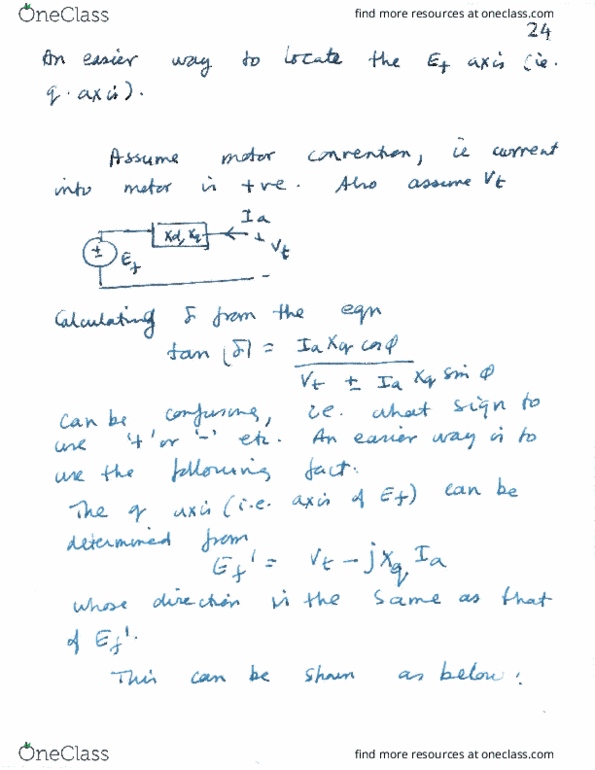 OneClass
find more resources at oneclass.com
24
An easier way to locate the Ef axis (ie.
q. axis).
Assume motor convention, ie current
into motor is +ve. Also assume Vt
Ia
Xd, Xq
+
±
Ef
Vt
-
Calculating δ from the eqn
tan |δ| = Ia Xq cos φ
Vt ± Ia Xq sin φ
can be confusing, i.e. what sign to
use '+' or '-' etc. An easier way is to
use the following fact.
The q axis (i.e. axis of Ef) can be
determined from
Ef' = Vt - jXq Ia
whose direction is the same as that
of Ef'.
This can be shown as below:
OneClass
find more resources at oneclass.com